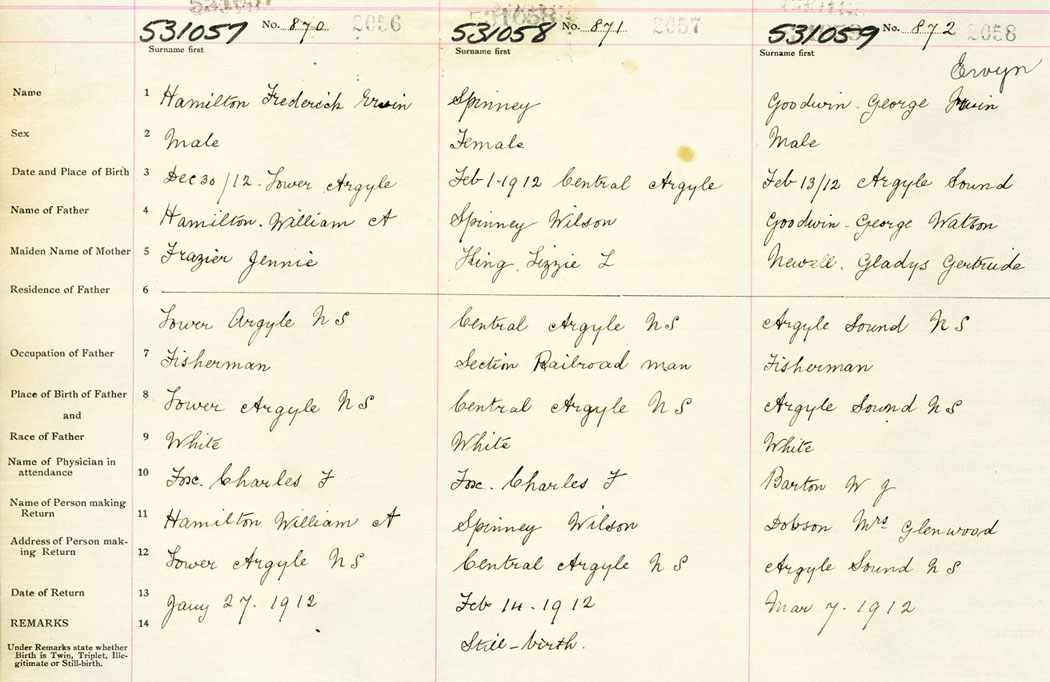 531057 No. 870 2056 531058 No. 871 2057 531059 No. 872 2058
Surname first Surname first Surname first
Erwyn
Name 1 Hamilton Frederick Erwin Spinney Goodwin. George Irwin
Sex 2 Male Female Male
Date and Place of Birth 3 Dec 30/12. Lower Argyle Feb 1-1912 Central Argyle Feb 13/12 Argyle Sound
Name of Father 4 Hamilton. William A Spinney Wilson Goodwin - George Watson
Maiden Name of Mother 5 Frazier Jennie King. Lizzie L Newell. Gladys Gertrude
Residence of Father 6
Lower Argyle N S Central Argyle N S Argyle Sound N S
Occupation of Father 7 Fisherman Section Railroad man Fisherman
Place of Birth of Father 8 Lower Argyle N S Central Argyle N S Argyle Sound N S
and
Race of Father 9 White White White
Name of Physician in
attendance 10 Fox. Charles F Fox. Charles F Barton W J
Name of Person making
Return 11 Hamilton William A Spinney Wilson Dobson Mrs Glenwood
Address of Person mak-
ing Return 12 Lower Argyle N S Central Argyle N S Argyle Sound N S
Date of Return 13 Jany 27. 1912 Feb 14. 1912 Mar 7. 1912
REMARKS 14
Under Remarks state whether
Birth is Twin, Triplet, Ille-
gitimate or Still-birth.
Still-birth.